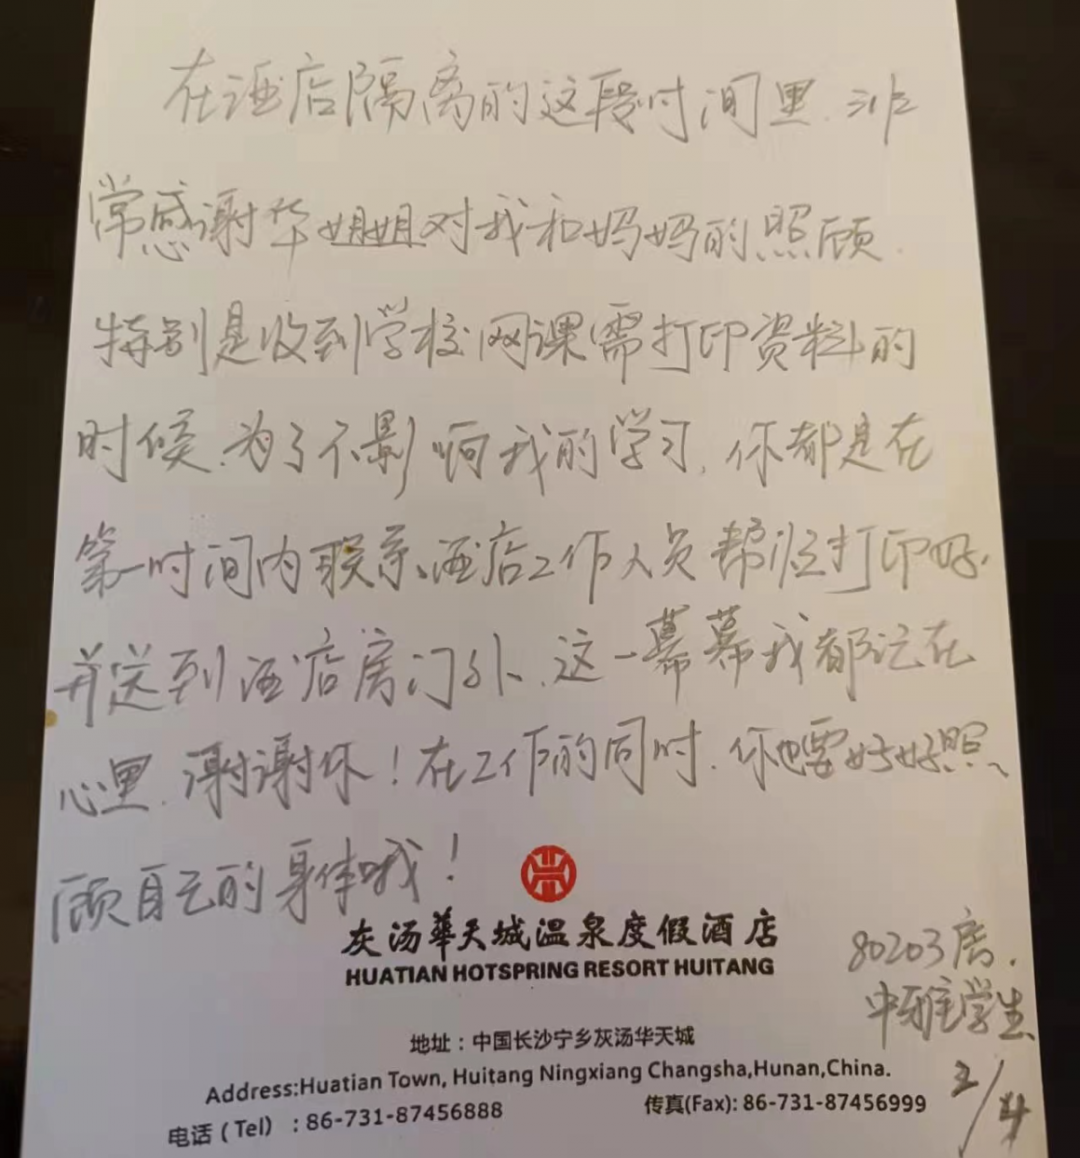 在酒店隔离的这段时间里.非
常感谢华姐姐对我和妈妈的照顾.
特别是收到学校网课需打印资料的
时候.为了不影响我的学习,你都是在
第一时间内联系酒店工作人员帮忙打印好.
并送到酒店房门外.这一幕幕我都记在
心里.谢谢你!在工作的同时.你也要好好照
顾自己的身体哦!
灰汤華天城温泉度假酒店
HUATIAN HOTSPRING RESORT HUITANG
80203房.
中雅学生
地址：中国长沙宁乡灰汤华天城
Address:Huatian Town, Huitang Ningxiang Changsha,Hunan,China.
2/4
电话（Tel）：86-731-87456888
传真(Fax): 86-731-87456999